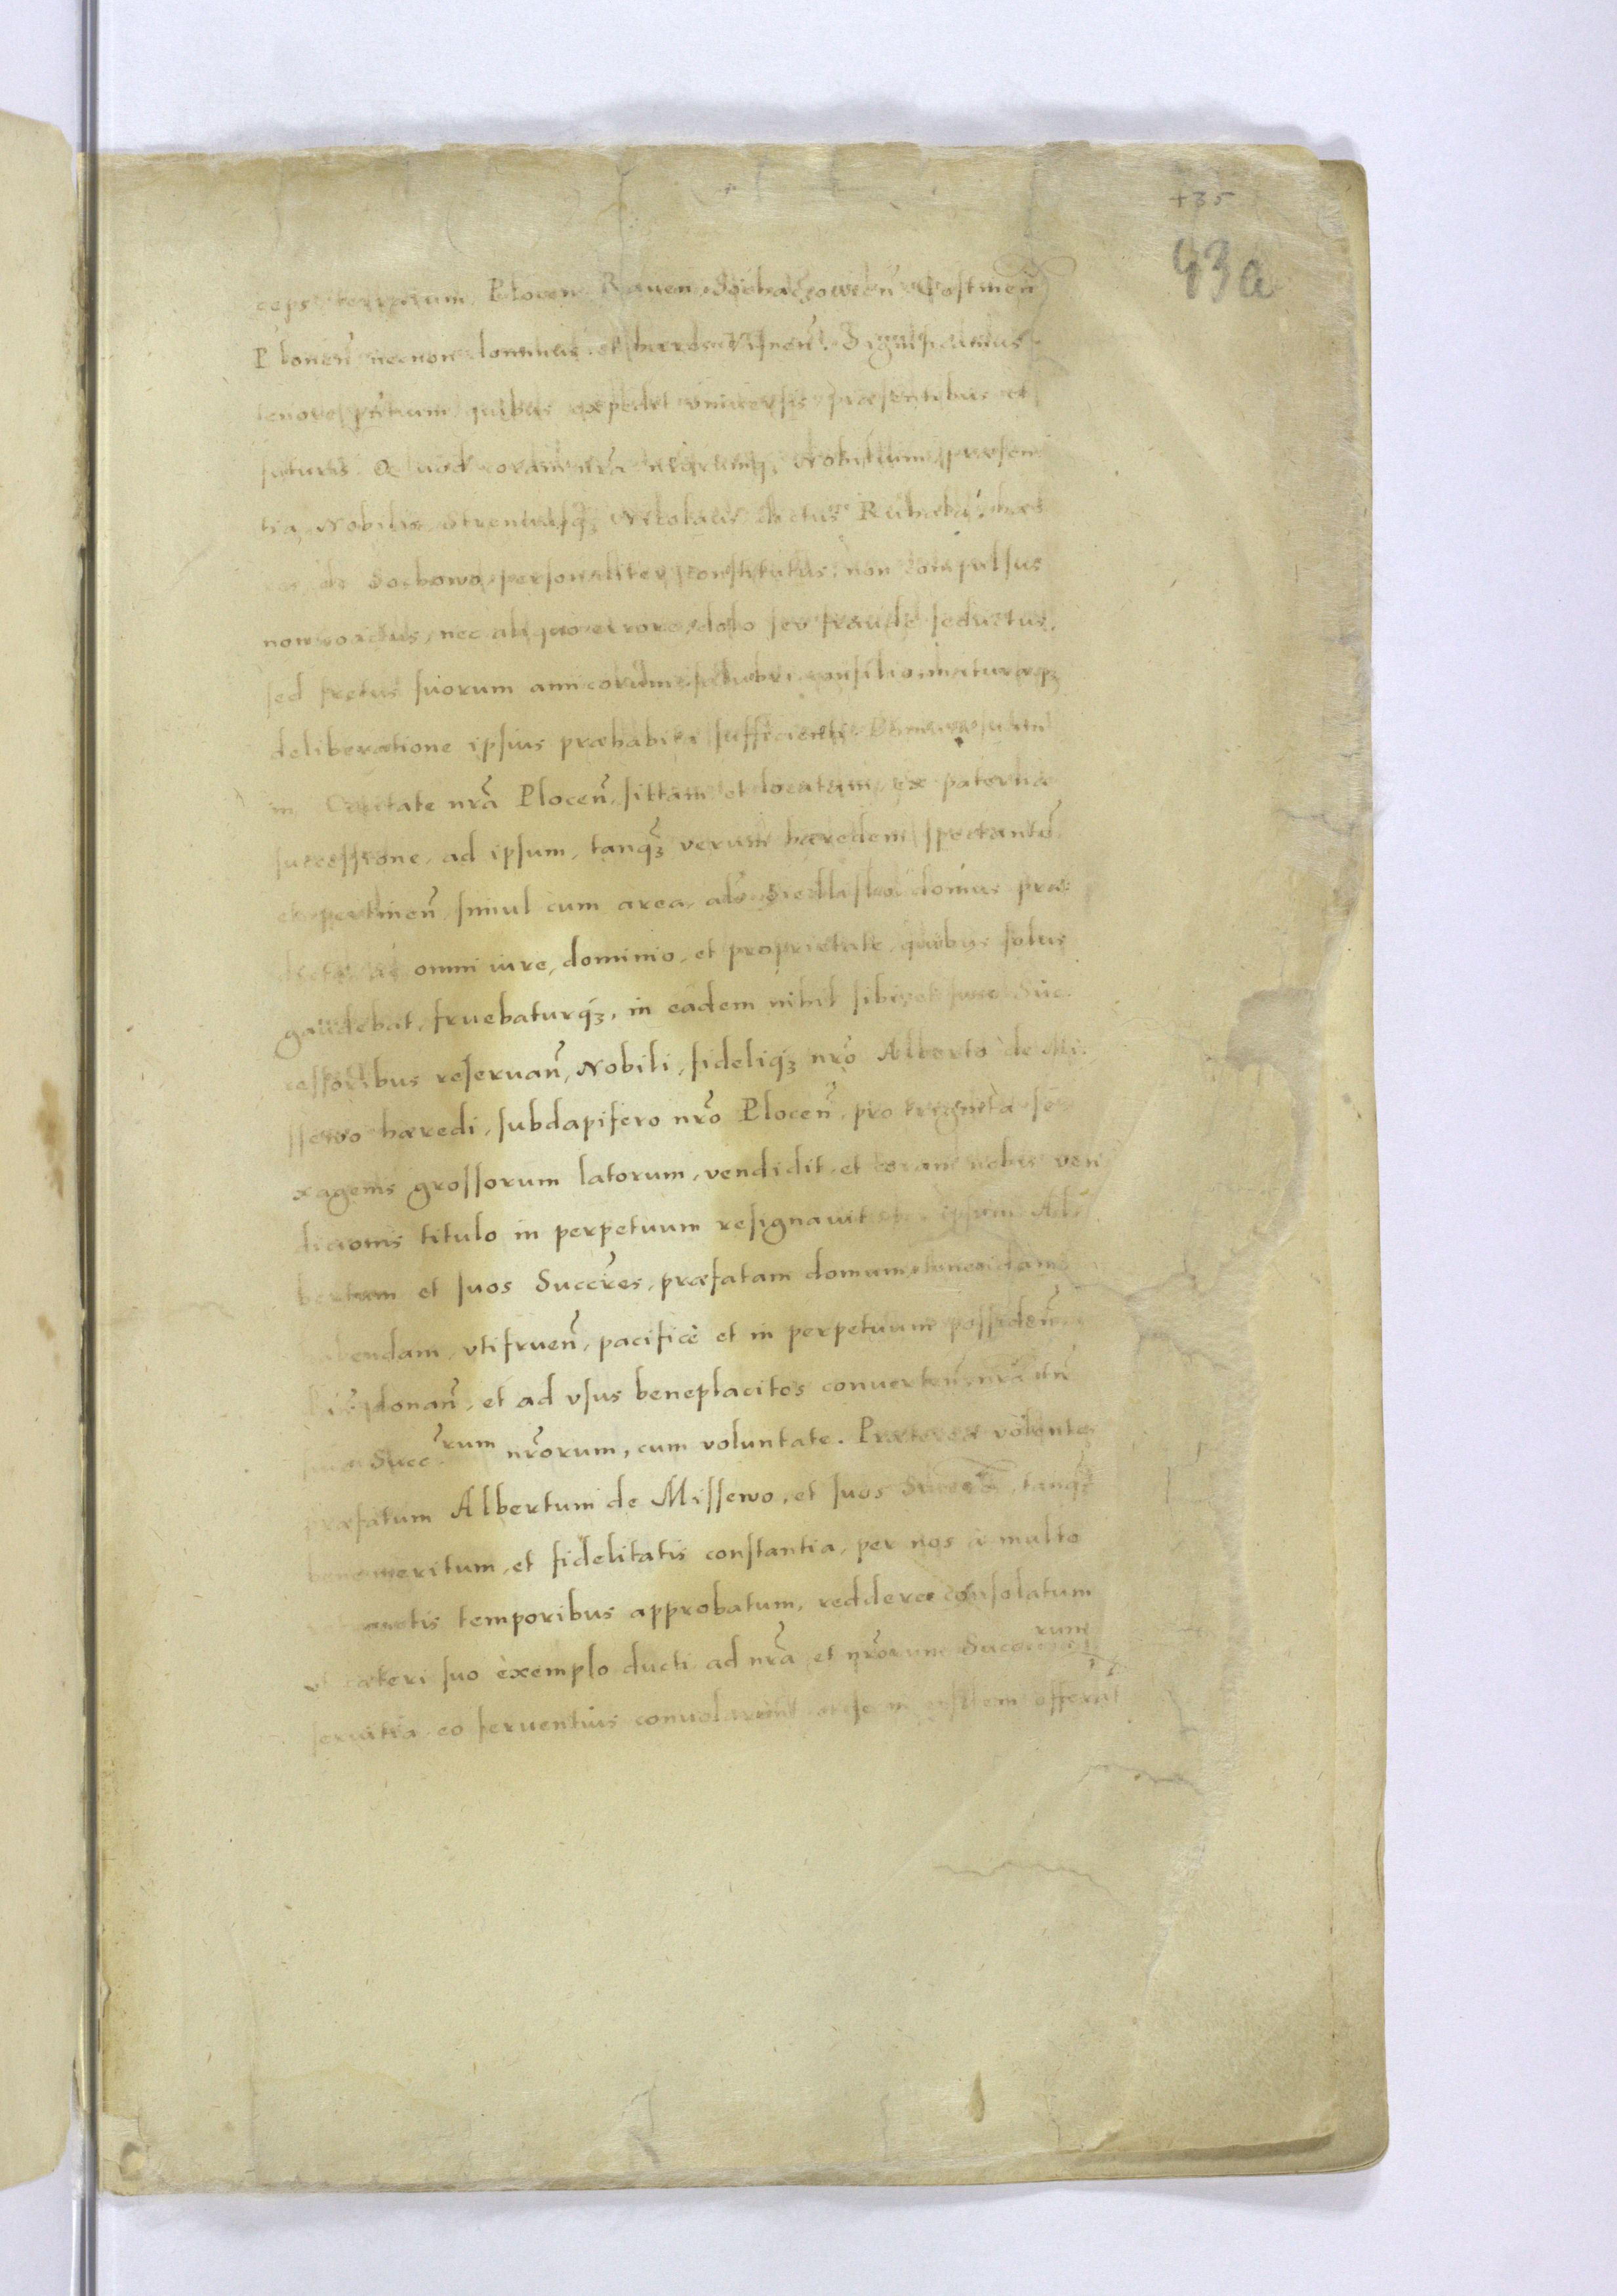 +35
43a
ceps terrarum Plocen Rauen Sochaczowień Gostineñ
Ploneñ necnon dominus et hæres Visneñ. Significamus
tenore pñtium quibus expedit vniuersis præsentibus et
futuris. Quod coram nrã nrõrumq́ꝫ Nobilium præsen
tia, Nobilis Strenuusq́ꝫ Nicolaus dictus
de Sochowo personaliter constitutus, non compulsus
non coactus, nec aliquo errore, dolo seu fraude seductus.
sed fretus suorum amicorum salubri consilio maturaq́ꝫ
deliberatione ipsius præhabita sufficienti. Domum suam
in Ciuitate nrã Ploceñ, sittam et locatam, ex paterna
successione, ad ipsum, tanq́ꝫ verum hæredem spectantẽ
et pertineñ simul cum area, domus præ:
omni iure, dominio, et proprietate, quibus solus
gaudebat, fruebaturq́ꝫ, in eadem nihil sibi, et suis Suc.
cessoribus reseruañ, Nobili, fideliq́ꝫ nrõ Alberto de Mi.
ssewo hæredi, subdapifero nrõ Ploceñ, pro triginta se
xagenis grossorum latorum, vendidit, et coram nobis ven
dicionis titulo in perpetuum resignauit ipsum Al:
bertum et suos Succr̃es, præfatam domum, tenendam
habendam, vtifrueñ, pacificè et in perpetuum possideñ.
donañ, et ad vsus beneplacitos conuerteñ, nrã
Succr̃um nrõrum, cum voluntate. Præterea volentes
præfatum Albertum de Missewo, et suos tanq́ꝫ
bene meritum, et fidelitatis constantia, per nos à multo
temporibus approbatum, reddere consolatum
vt cæteri suo èxemplo ducti ad nrã et nrõrum Succerum
seruitia eo feruentius conuolarent et se in eisdem offerãt